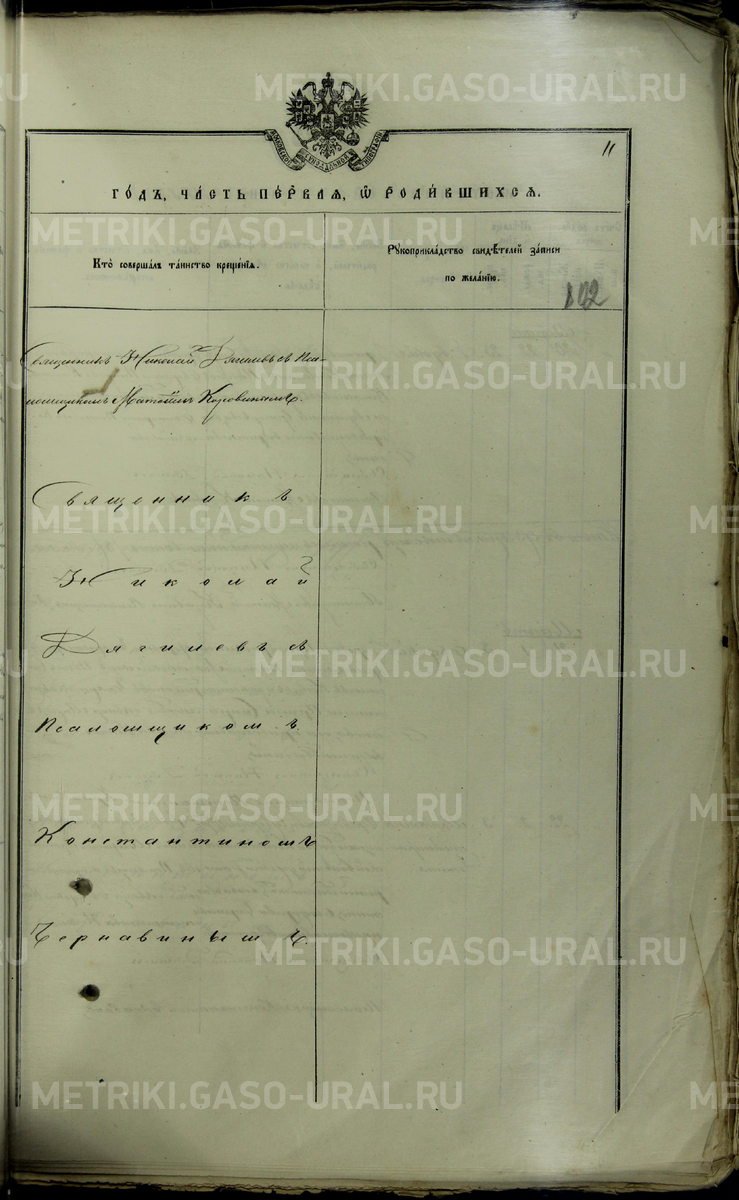 METRIKI.GASO-URAL.RU
11
ГО́ДЪ, ЧА́СТЬ ПЕ́РВАЯ, Ѡ҆ РОДИ́ВШИХСЯ.
Кто̀ соверша́лъ та́инство креще́нїѧ.
Рꙋкоприкла́дство свидѣ́телей за́писи
по жела́нїю.
102
Священникъ Николай Дягилевъ съ Пса-
ломщикомъ
Священникъ
METRIKI.GASO-URAL.RU
Николай
Дягилевъ съ
METRIKI.GASO-URAL.RU
Псаломщикомъ
METRIKI.GASO-URAL.RU
Константиномъ
Чернавинымъ.
METRIKI.GASO-URAL.RU
METRIKI.GASO-URAL.RU